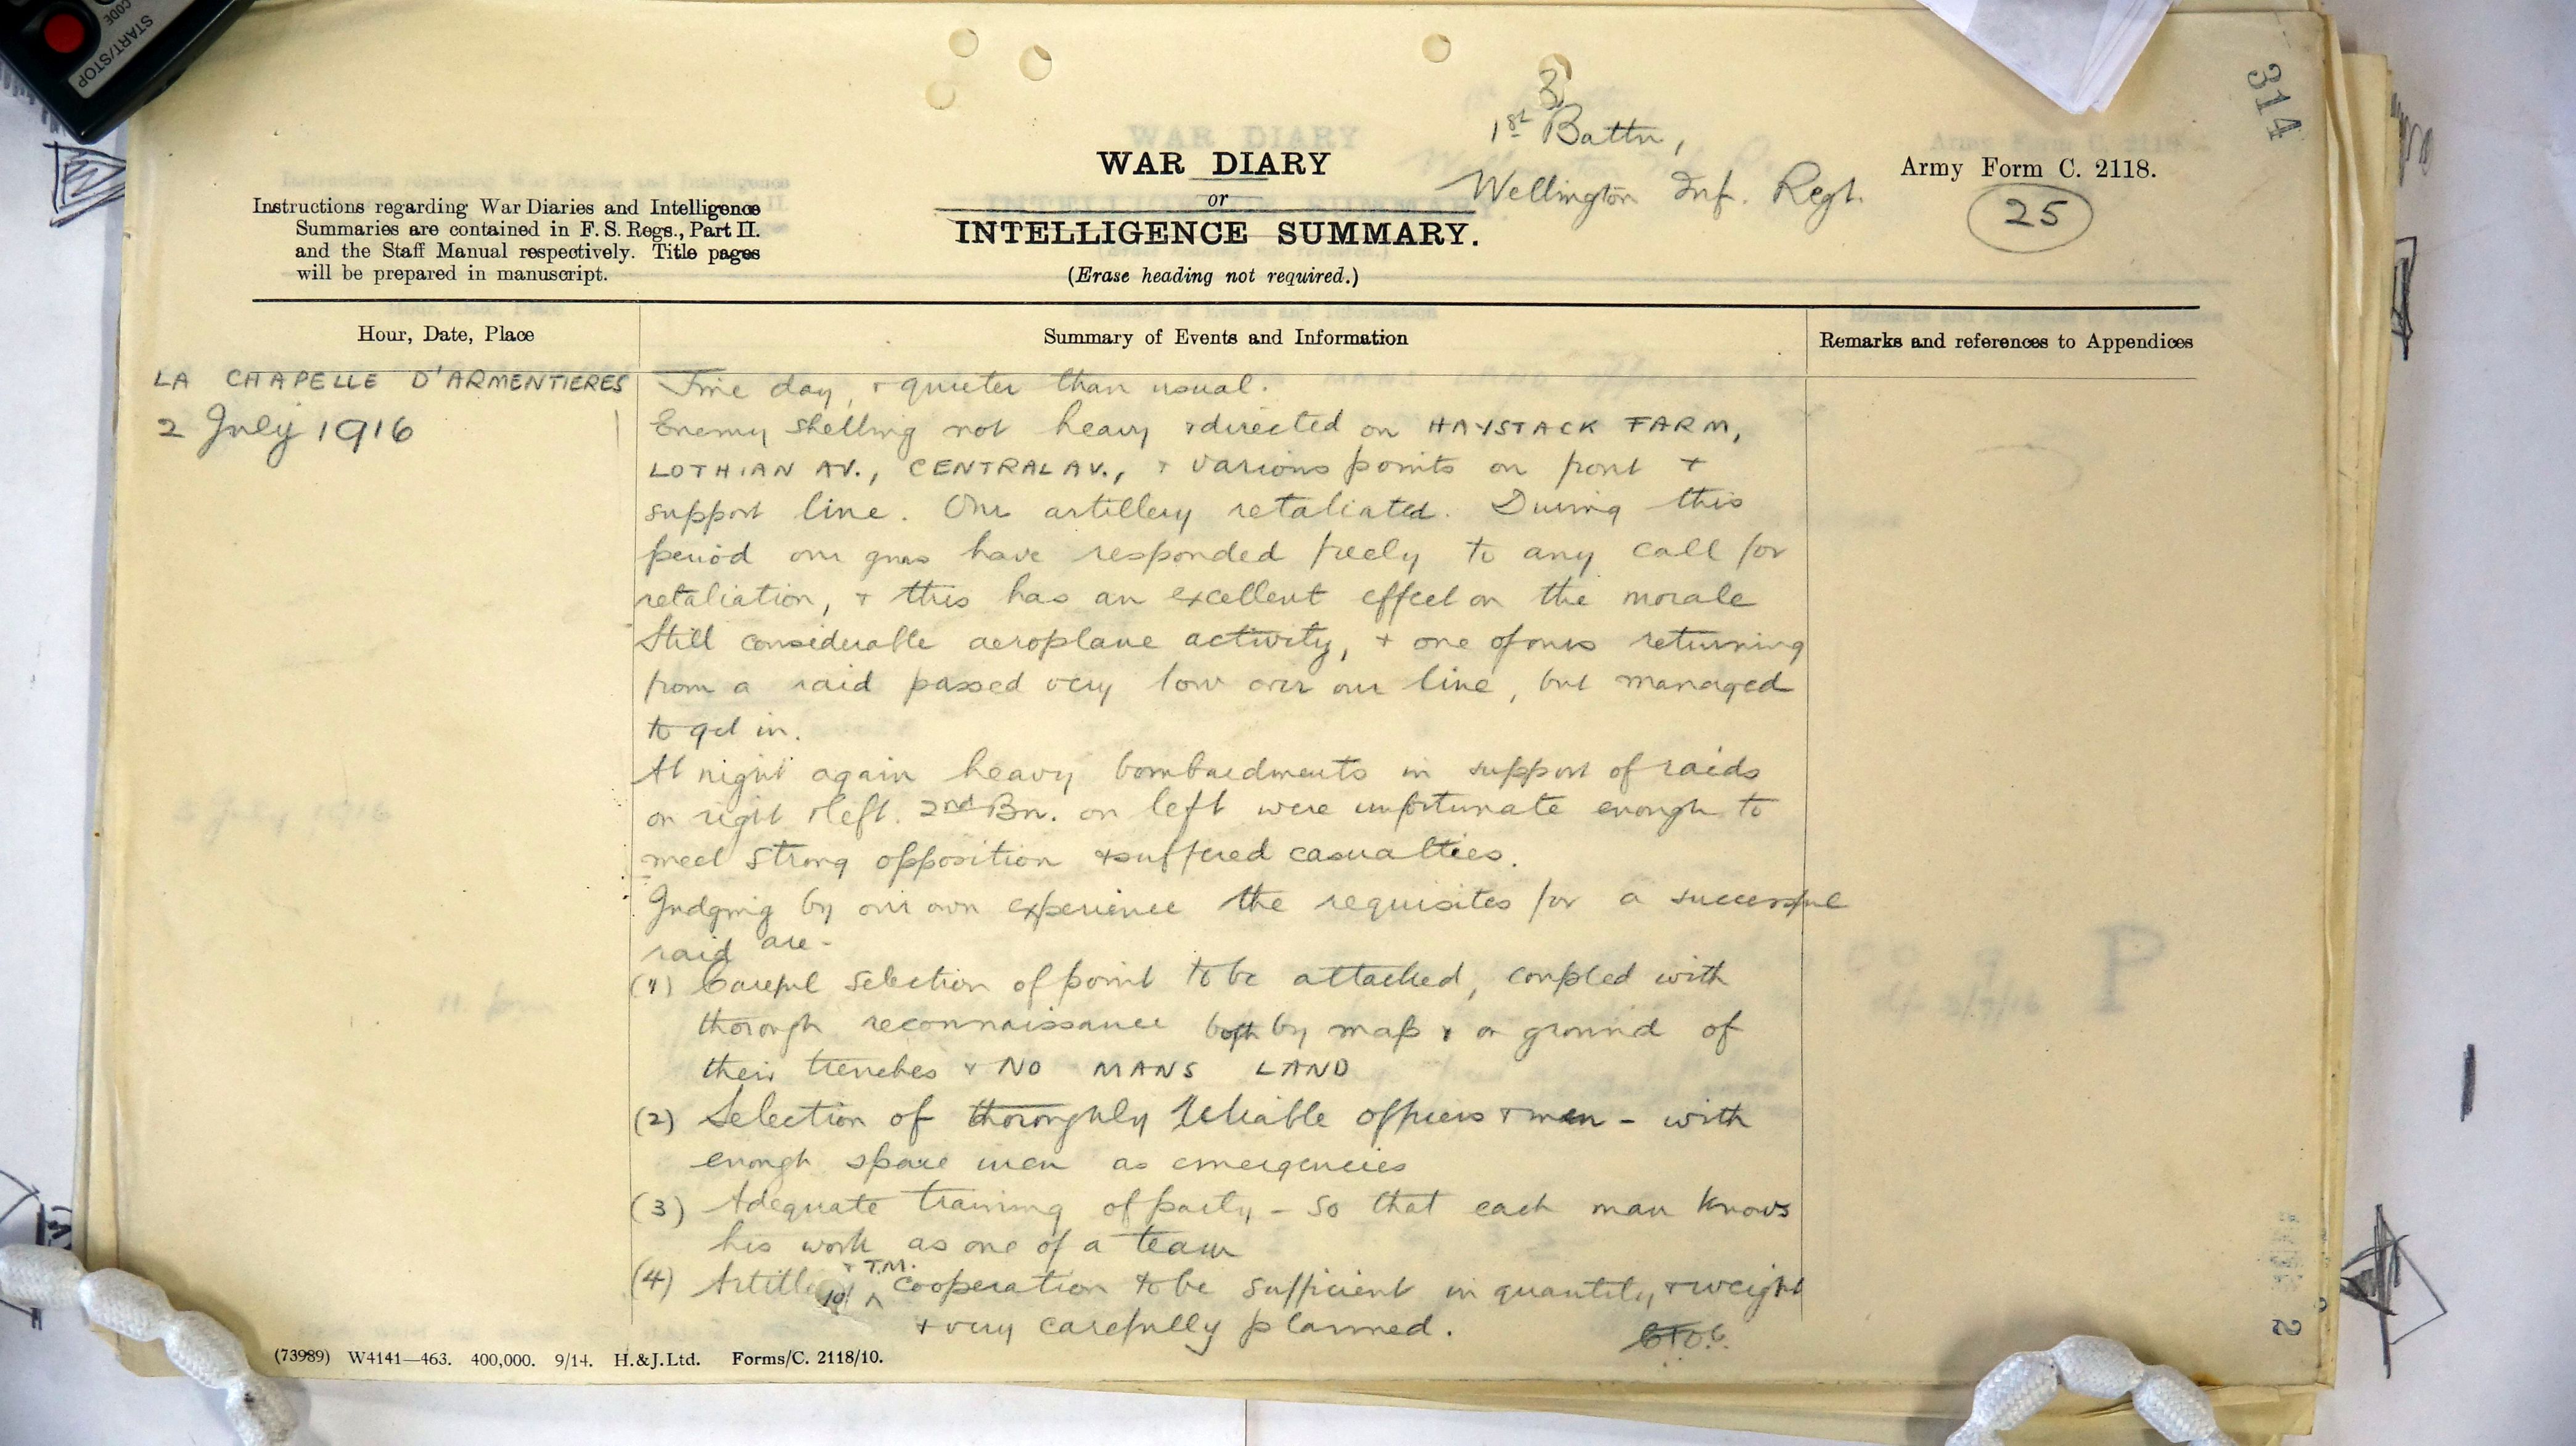 START/STOP
CODE
314
3
1st Battn,
Wellington Inf. Regt.
WAR DIARY
or
INTELLIGENCE SUMMARY.
(Erase heading not required.)
Army Form C. 2118.
25
Instructions regarding War Diaries and Intelligence
Summaries are contained in F. S. Regs., Part II.
and the Staff Manual respectively. Title pages
will be prepared in manuscript.
Hour, Date, Place
Summary of Events and Information
Remarks and references to Appendices
LA CHAPELLE D'ARMENTIERES
2 July 1916
Fine day, + quieter than usual.
Enemy shelling not heavy + directed on HAYSTACK FARM,
LOTHIAN AV., CENTRAL AV., + various points on front +
support line. Our artillery retaliated. During this
period our guns have responded freely to any call for
retaliation, + this has an excellent effect on the morale
Still considerable aeroplane activity, + one of ours returning
from a raid passed very low over our line, but managed
to get in.
At night again heavy bombardments in support of raids
on right + left. 2nd Bn. on left were unfortunate enough to
meet strong opposition + suffered casualties.
Judging by our own experience the requisites for a successful
raid are -
(1) Careful selection of point to be attacked, coupled with
thorough reconnaissance both by map + on ground of
their trenches + NO MANS LAND
(2) Selection of thoroughly reliable officers + men - with
enough spare men as emergencies
(3) Adequate training of party - so that each man knows
his work as one of a team
(4) Artillery + T.M. cooperation to be sufficient in quantity + weight
+ very carefully planned.
(73989) W4141—463. 400,000. 9/14. H. & J. Ltd. Forms/C. 2118/10.